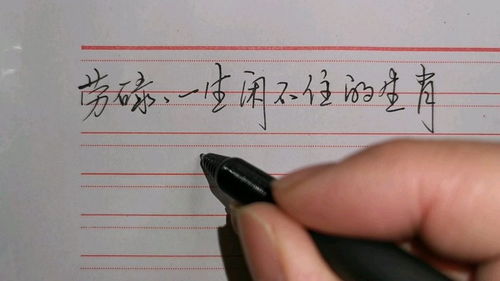 劳碌、一生闲不住的生肖